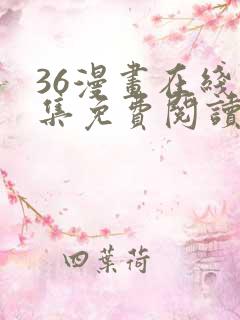 36漫畫在綫
集免費閱讀
四葉荷